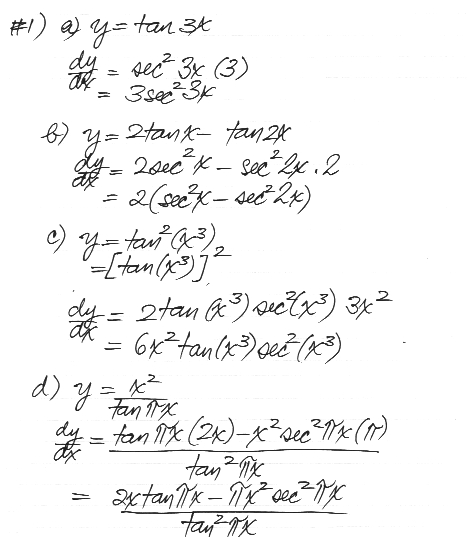 #1) a) y = tan 3x
dy/dx = sec² 3x (3)
= 3sec² 3x
b) y = 2tanx - tan2x
dy/dx = 2sec²x - sec²2x . 2
= 2(sec²x - sec²2x)
c) y = tan²(x³)
= [tan(x³)]²
dy/dx = 2tan(x³) sec²(x³) 3x²
= 6x² tan(x³) sec²(x³)
d) y = x²/tanπx
dy/dx = (tanπx (2x) - x² sec²πx (π))/tan²πx
= (2xtanπx - πx² sec²πx)/tan²πx